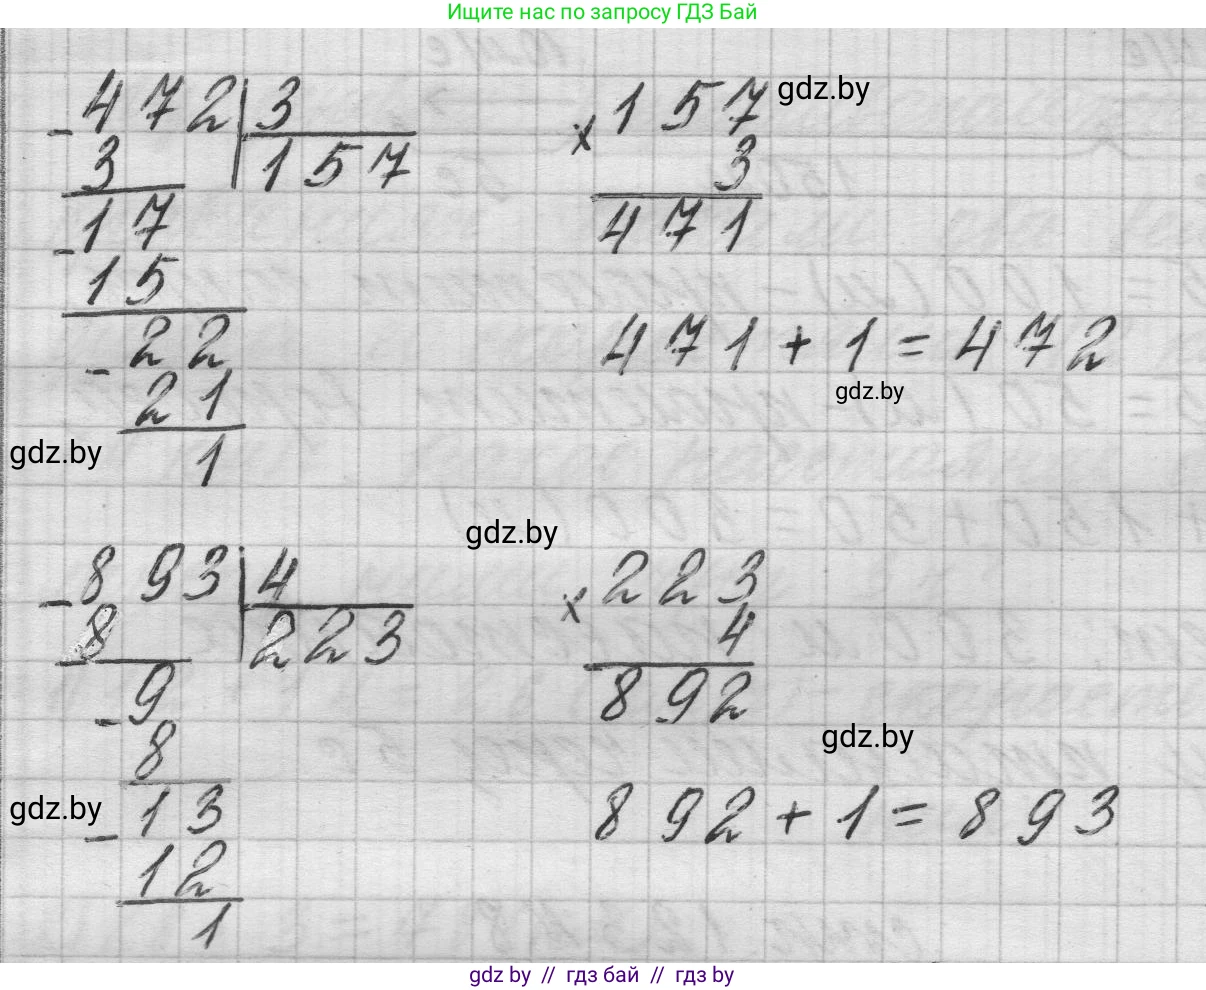 Ищите нас по запросу ГДЗ Бай
472 | 3
- 3 | 157
17
- 15
22
- 21
1
157
× 3
471
gdz.by
471 + 1 = 472
gdz.by
gdz.by
gdz.by
893 | 4
- 8 | 223
9
- 8
13
- 12
1
223
× 4
892
gdz.by
892 + 1 = 893
gdz.by
gdz.by // гдз бай // гдз by